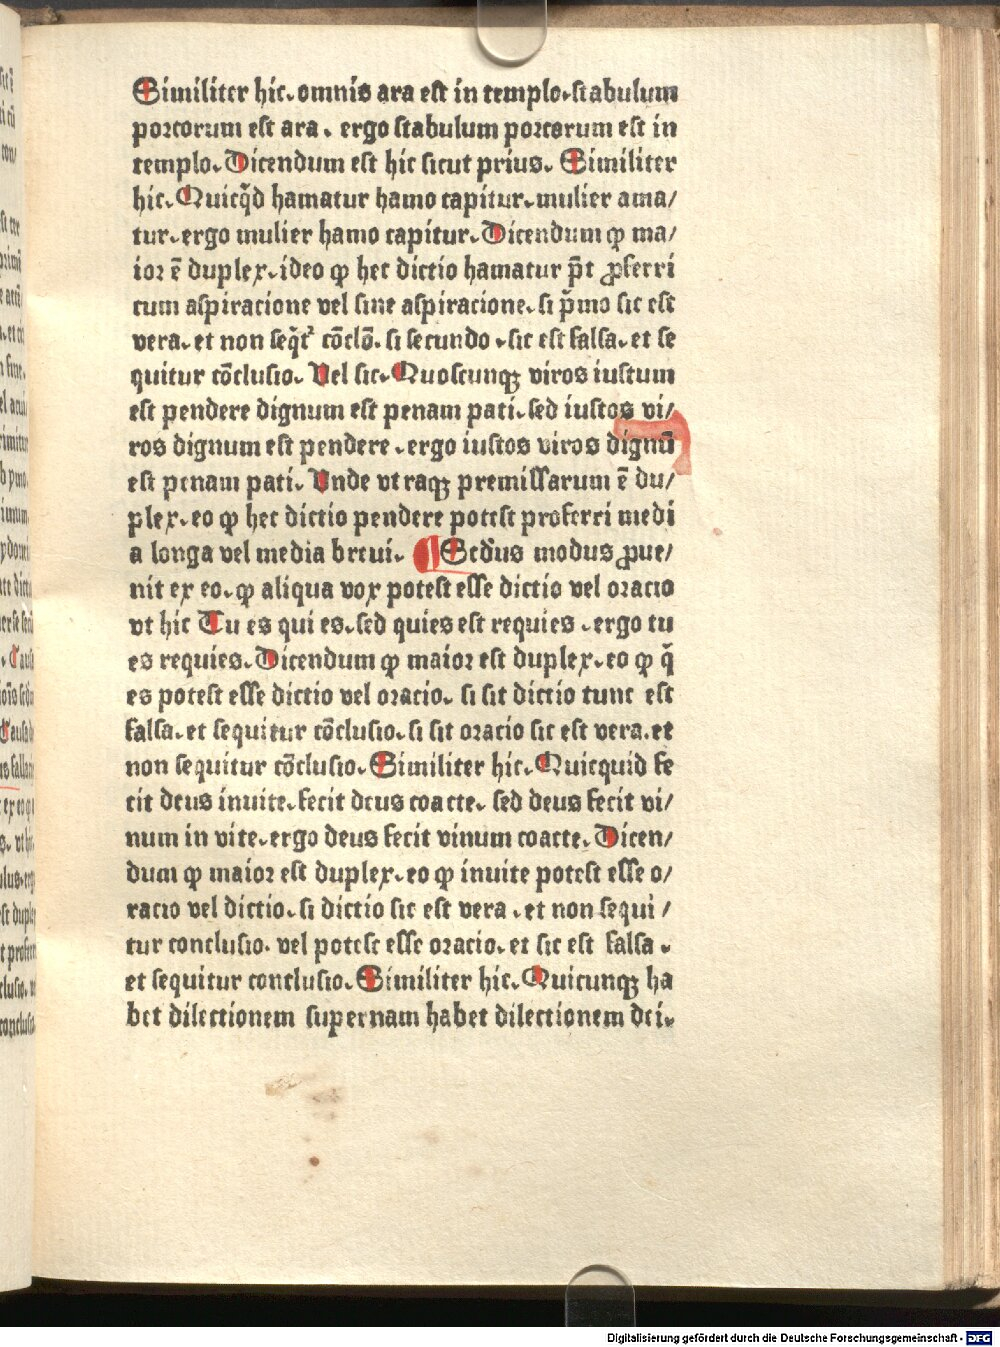 Similiter hic. omnis ara est in templo. stabulum
porcorum est ara. ergo stabulum porcorum est in
templo. Dicendum est hic sicut prius. Similiter
hic. Quicq̃d hamatur hamo capitur. mulier ama/
tur. ergo mulier hamo capitur. Dicendum ꝙ ma/
ior ē duplex. ideo ꝙ hec dictio hamatur p̄t ꝓferri
cum aspiracione vel sine aspiracione. si p̄mo sic est
vera. et non seq̄t᷑ cōclō. si secundo. sic est falsa. et se
quitur cōclusio. Vel sic. Quoscunqꝫ viros iustum
est pendere dignum est penam pati. sed iustos vi/
ros dignum est pendere. ergo iustos viros dignū
est penam pati. Unde vtraqꝫ premissarum ē du/
plex. eo ꝙ hec dictio pendere potest proferri medi
a longa vel media breui. ¶ Scd̄us modus ꝓue/
nit ex eo. ꝙ aliqua vox potest esse dictio vel oracio
vt hic Tu es qui es. sed quies est requies. ergo tu
es requies. Dicendum ꝙ maior est duplex. eo ꝙ q̄
es potest esse dictio vel oracio. si sit dictio tunc est
falsa. et sequitur cōclusio. si sit oracio sic est vera. et
non sequitur cōclusio. Similiter hic. Quicquid fe
cit deus inuite. fecit deus coacte. sed deus fecit vi/
num in vite. ergo deus fecit vinum coacte. Dicen/
dum ꝙ maior est duplex. eo ꝙ inuite potest esse o/
racio vel dictio. si dictio sic est vera. et non sequi/
tur conclusio. vel potest esse oracio. et sic est falsa.
et sequitur conclusio. Similiter hic. Quicunqꝫ ha
bet dilectionem supernam habet dilectionem dei.
Digitalisierung gefördert durch die Deutsche Forschungsgemeinschaft - DFG